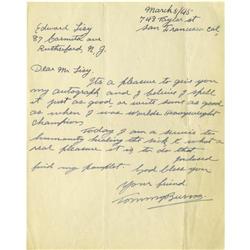 March 8/45
748 Taylor st
San Francisco Cal
Edward Lisy
87 Carmita ave
Rutherford, N. J.
Dear Mr Lisy
Its a pleasure to give you
my autograph and I belive I spell
it just as good or write just as good
as when I was Worlds Heavyweight
Champion
Today I am a service to
humanity healing the sick & what a
real pleasure it is to do that
Inclosed
find my pamplet. God bless you
Your friend
Tommy Burns